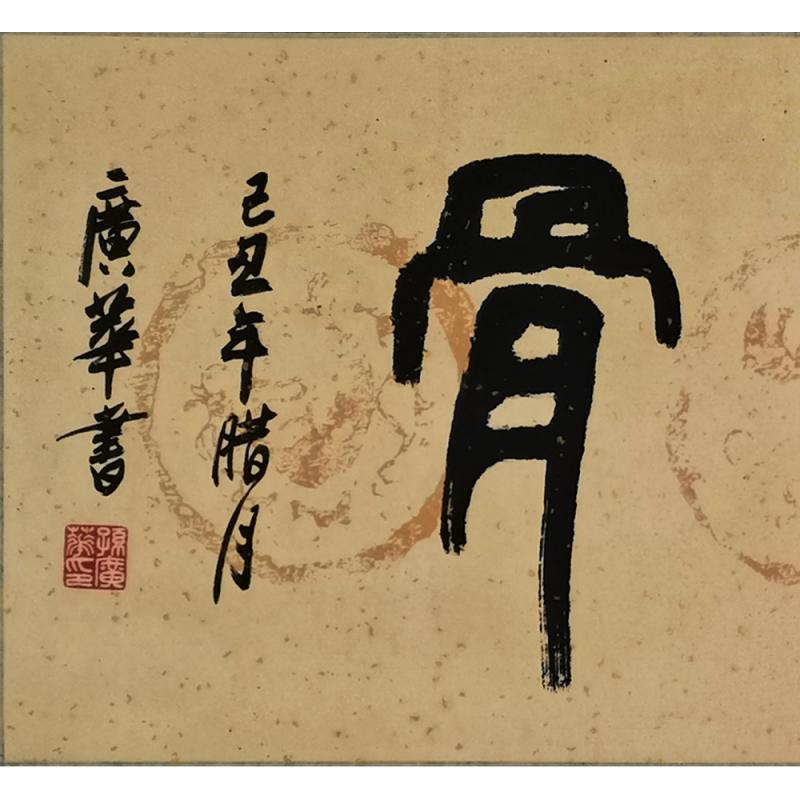 骨
己丑年腊月
廣華書
孫廣華印